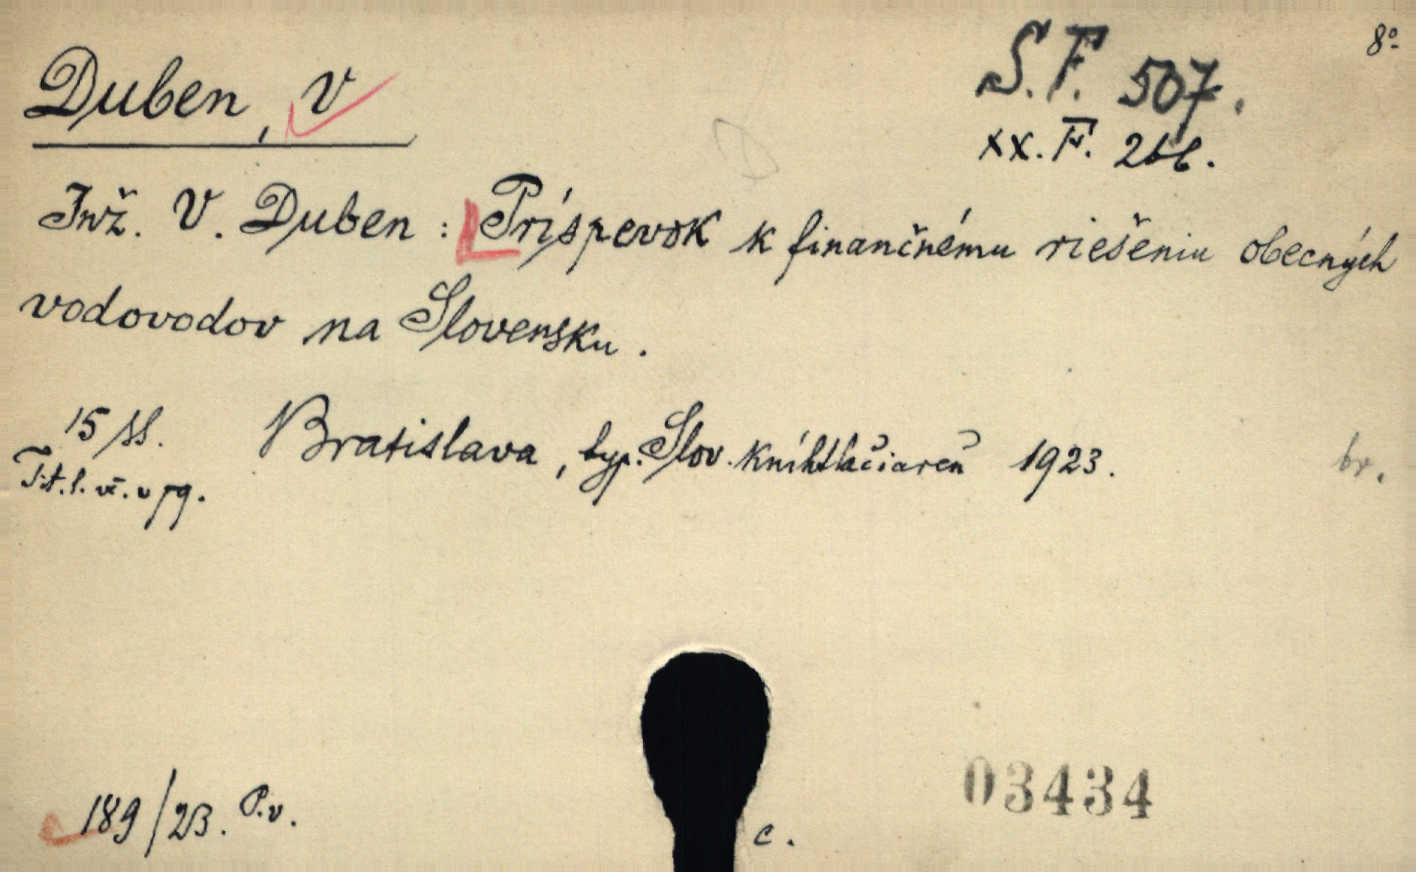 8º
S.F. 507.
Duben, V
xx. F. 266.
Inž. V. Duben : Príspevok k finančnému riešeniu obecných
vodovodov na Slovensku.
15 ss. Bratislava, typ. Slov. kníhtlačiareň 1923. br.
Tit. l. vč. v pg.
189/23. P.v.
03434
c.